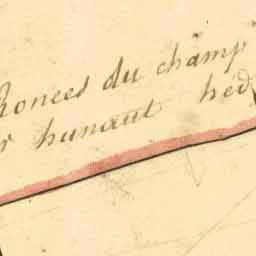 Ronces du champ
r hunaut héd